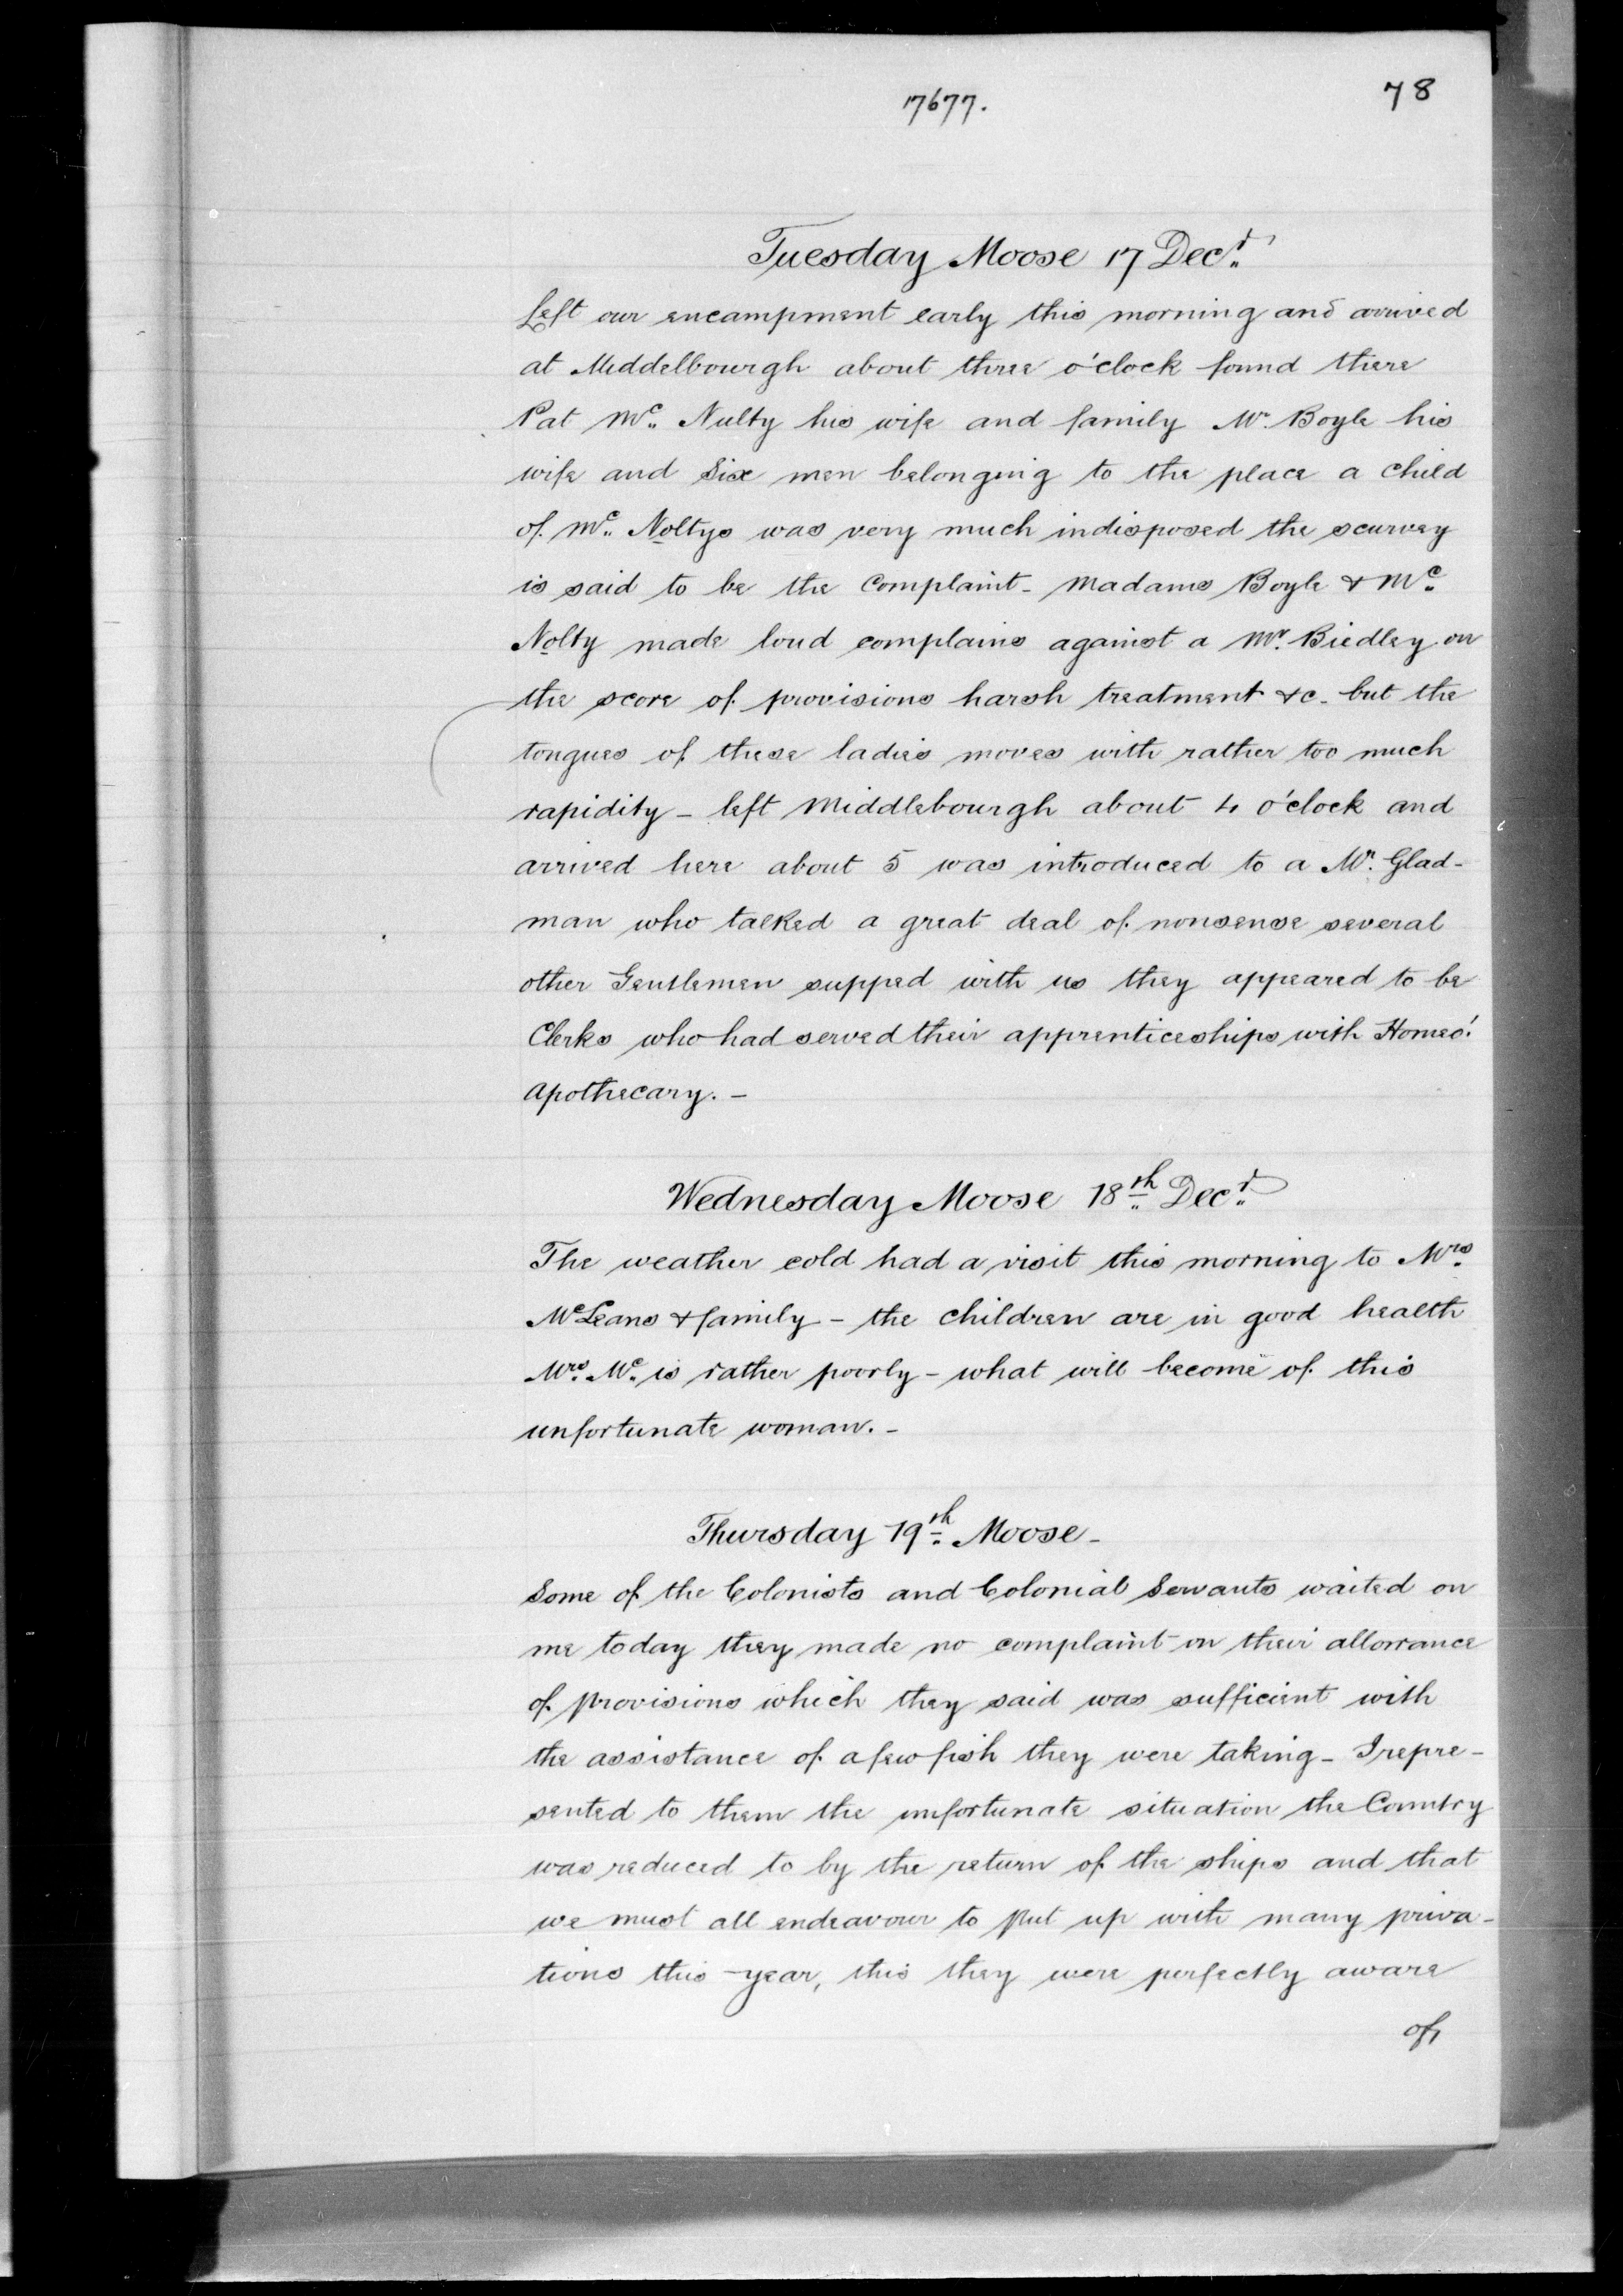 17677.
78
Tuesday Moose 17 Decr.
Left our encampment early this morning and arrived
at Middelbourgh about three o'clock found there
Pat Mc. Nulty his wife and family Mr. Boyle his
wife and Six men belonging to the place a child
of Mc. Noltys was very much indisposed the scurvey
is said to be the Complaint - Madams Boyle & Mc.
Nolty made loud complains against a Mr. Biedley on
the score of provisions harsh treatment &c - but the
tongues of these ladies moves with rather too much
rapidity - left Middlebourgh about 4 o'clock and
arrived here about 5 was introduced to a Mr. Glad-
man who talked a great deal of nonsense several
other Gentlemen supped with us they appeared to be
Clerks who had served their apprenticeships with Homeo!
Apothecary. -
Wednesday Moose 18th. Decr.
The weather cold had a visit this morning to Mrs.
McLeans & family - the children are in good health
Mrs. Mc. is rather poorly - what will become of this
unfortunate woman. -
Thursday 19th. Moose -
Some of the Colonists and Colonial Servants waited on
me today they made no complaint on their allowance
of provisions which they said was sufficient with
the assistance of a few fish they were taking - I repre-
sented to them the unfortunate situation the Country
was reduced to by the return of the ships and that
we must all endeavour to put up with many priva-
tions this year, this they were perfectly aware
of,